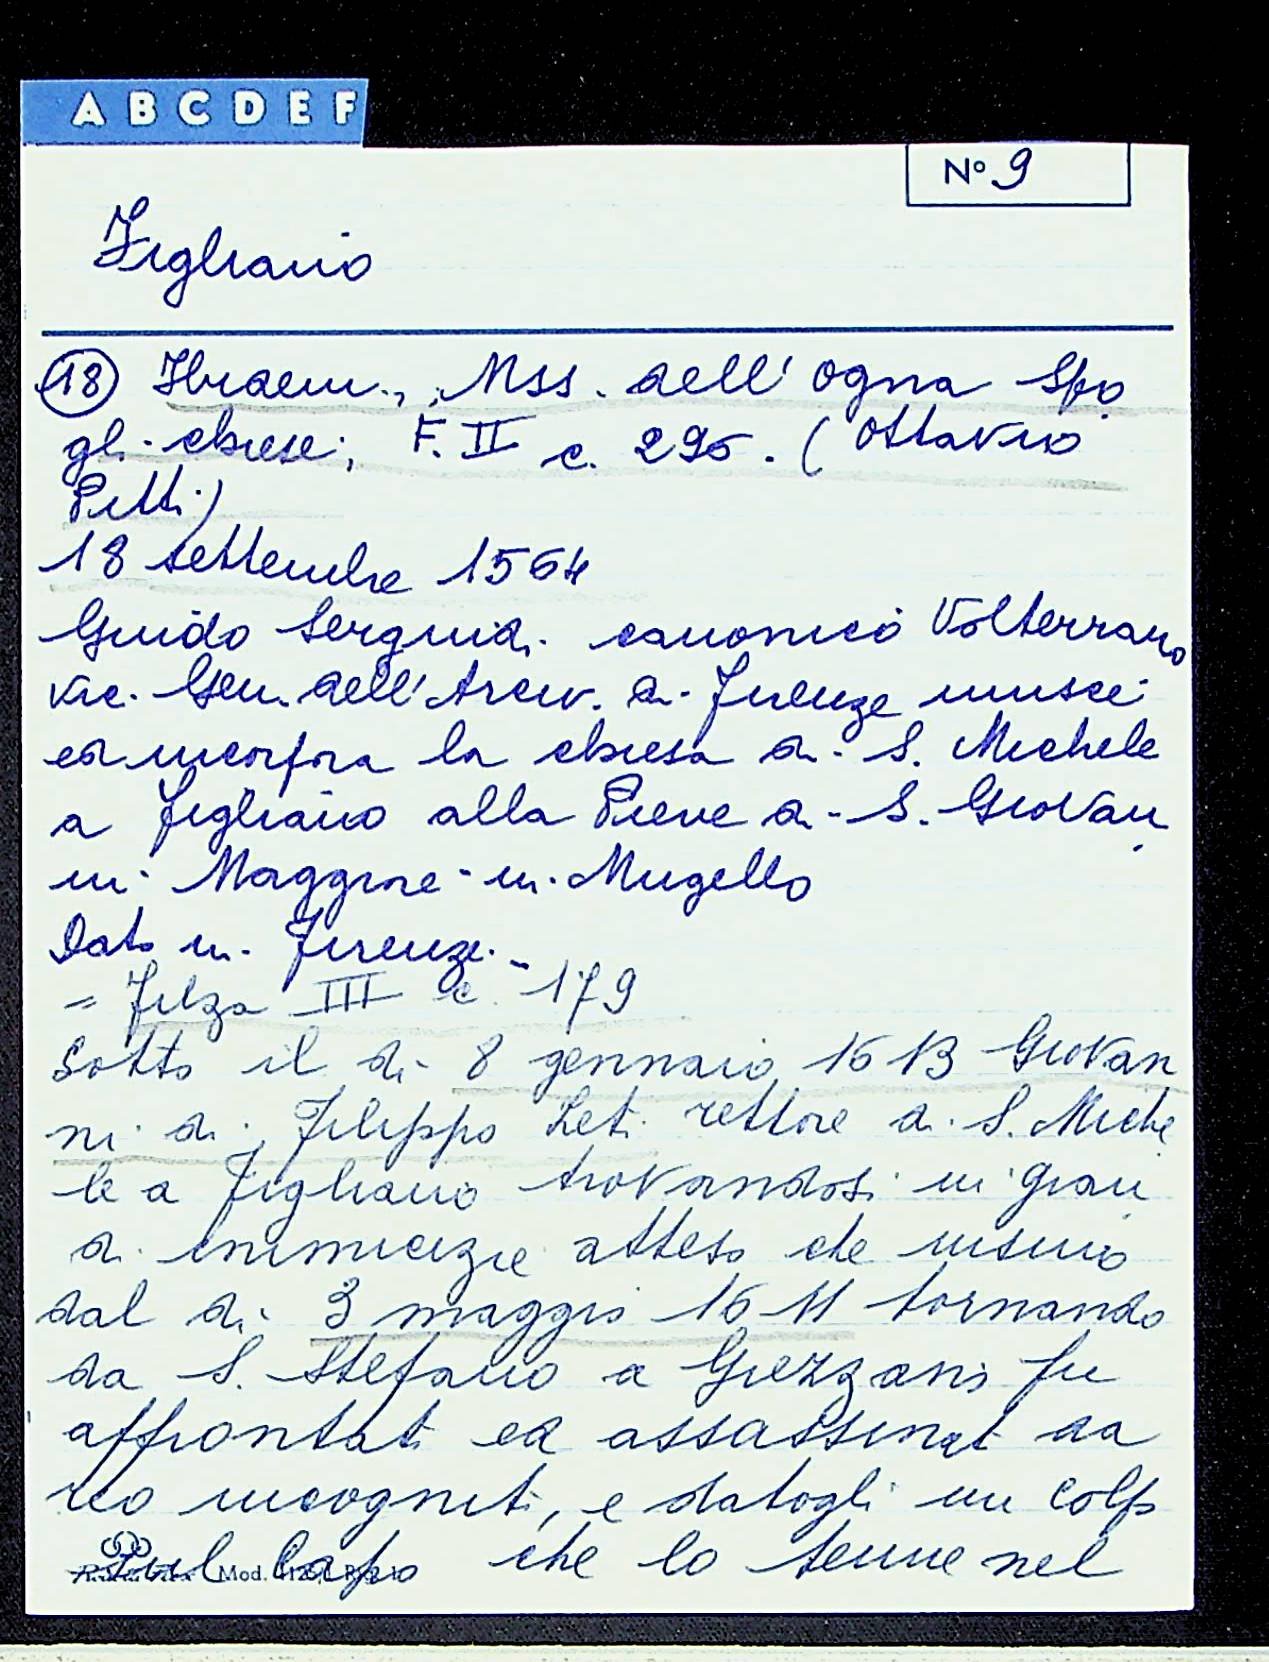 A B C D E F
N° 9
Figliano
18 Ibidem., Mss. dell' Ogna Spo
gli chiese; F. II c. 295. (Ottavio
Pitti)
18 settembre 1564
Guido Serguidi canonico Volterrano
Vic. Gen. dell' Arciv. di Firenze unisce
ed incorpora la chiesa di S. Michele
a Figliano alla Pieve di S. Giovan
ni Maggiore in Mugello
Dato in Firenze. -
= Filza III c. 179
Sotto il dì 8 gennaio 1613 Giovan
ni di Filippo Leti rettore di S. Miche
le a Figliano trovandosi in gran
di inimicizie atteso che insino
dal dì 3 maggio 1611 tornando
da S. Stefano a Grezzano fu
affrontat ed assassinat da
reo incogniti, e datogli un colpo
sul capo che lo tenne nel
Mod.